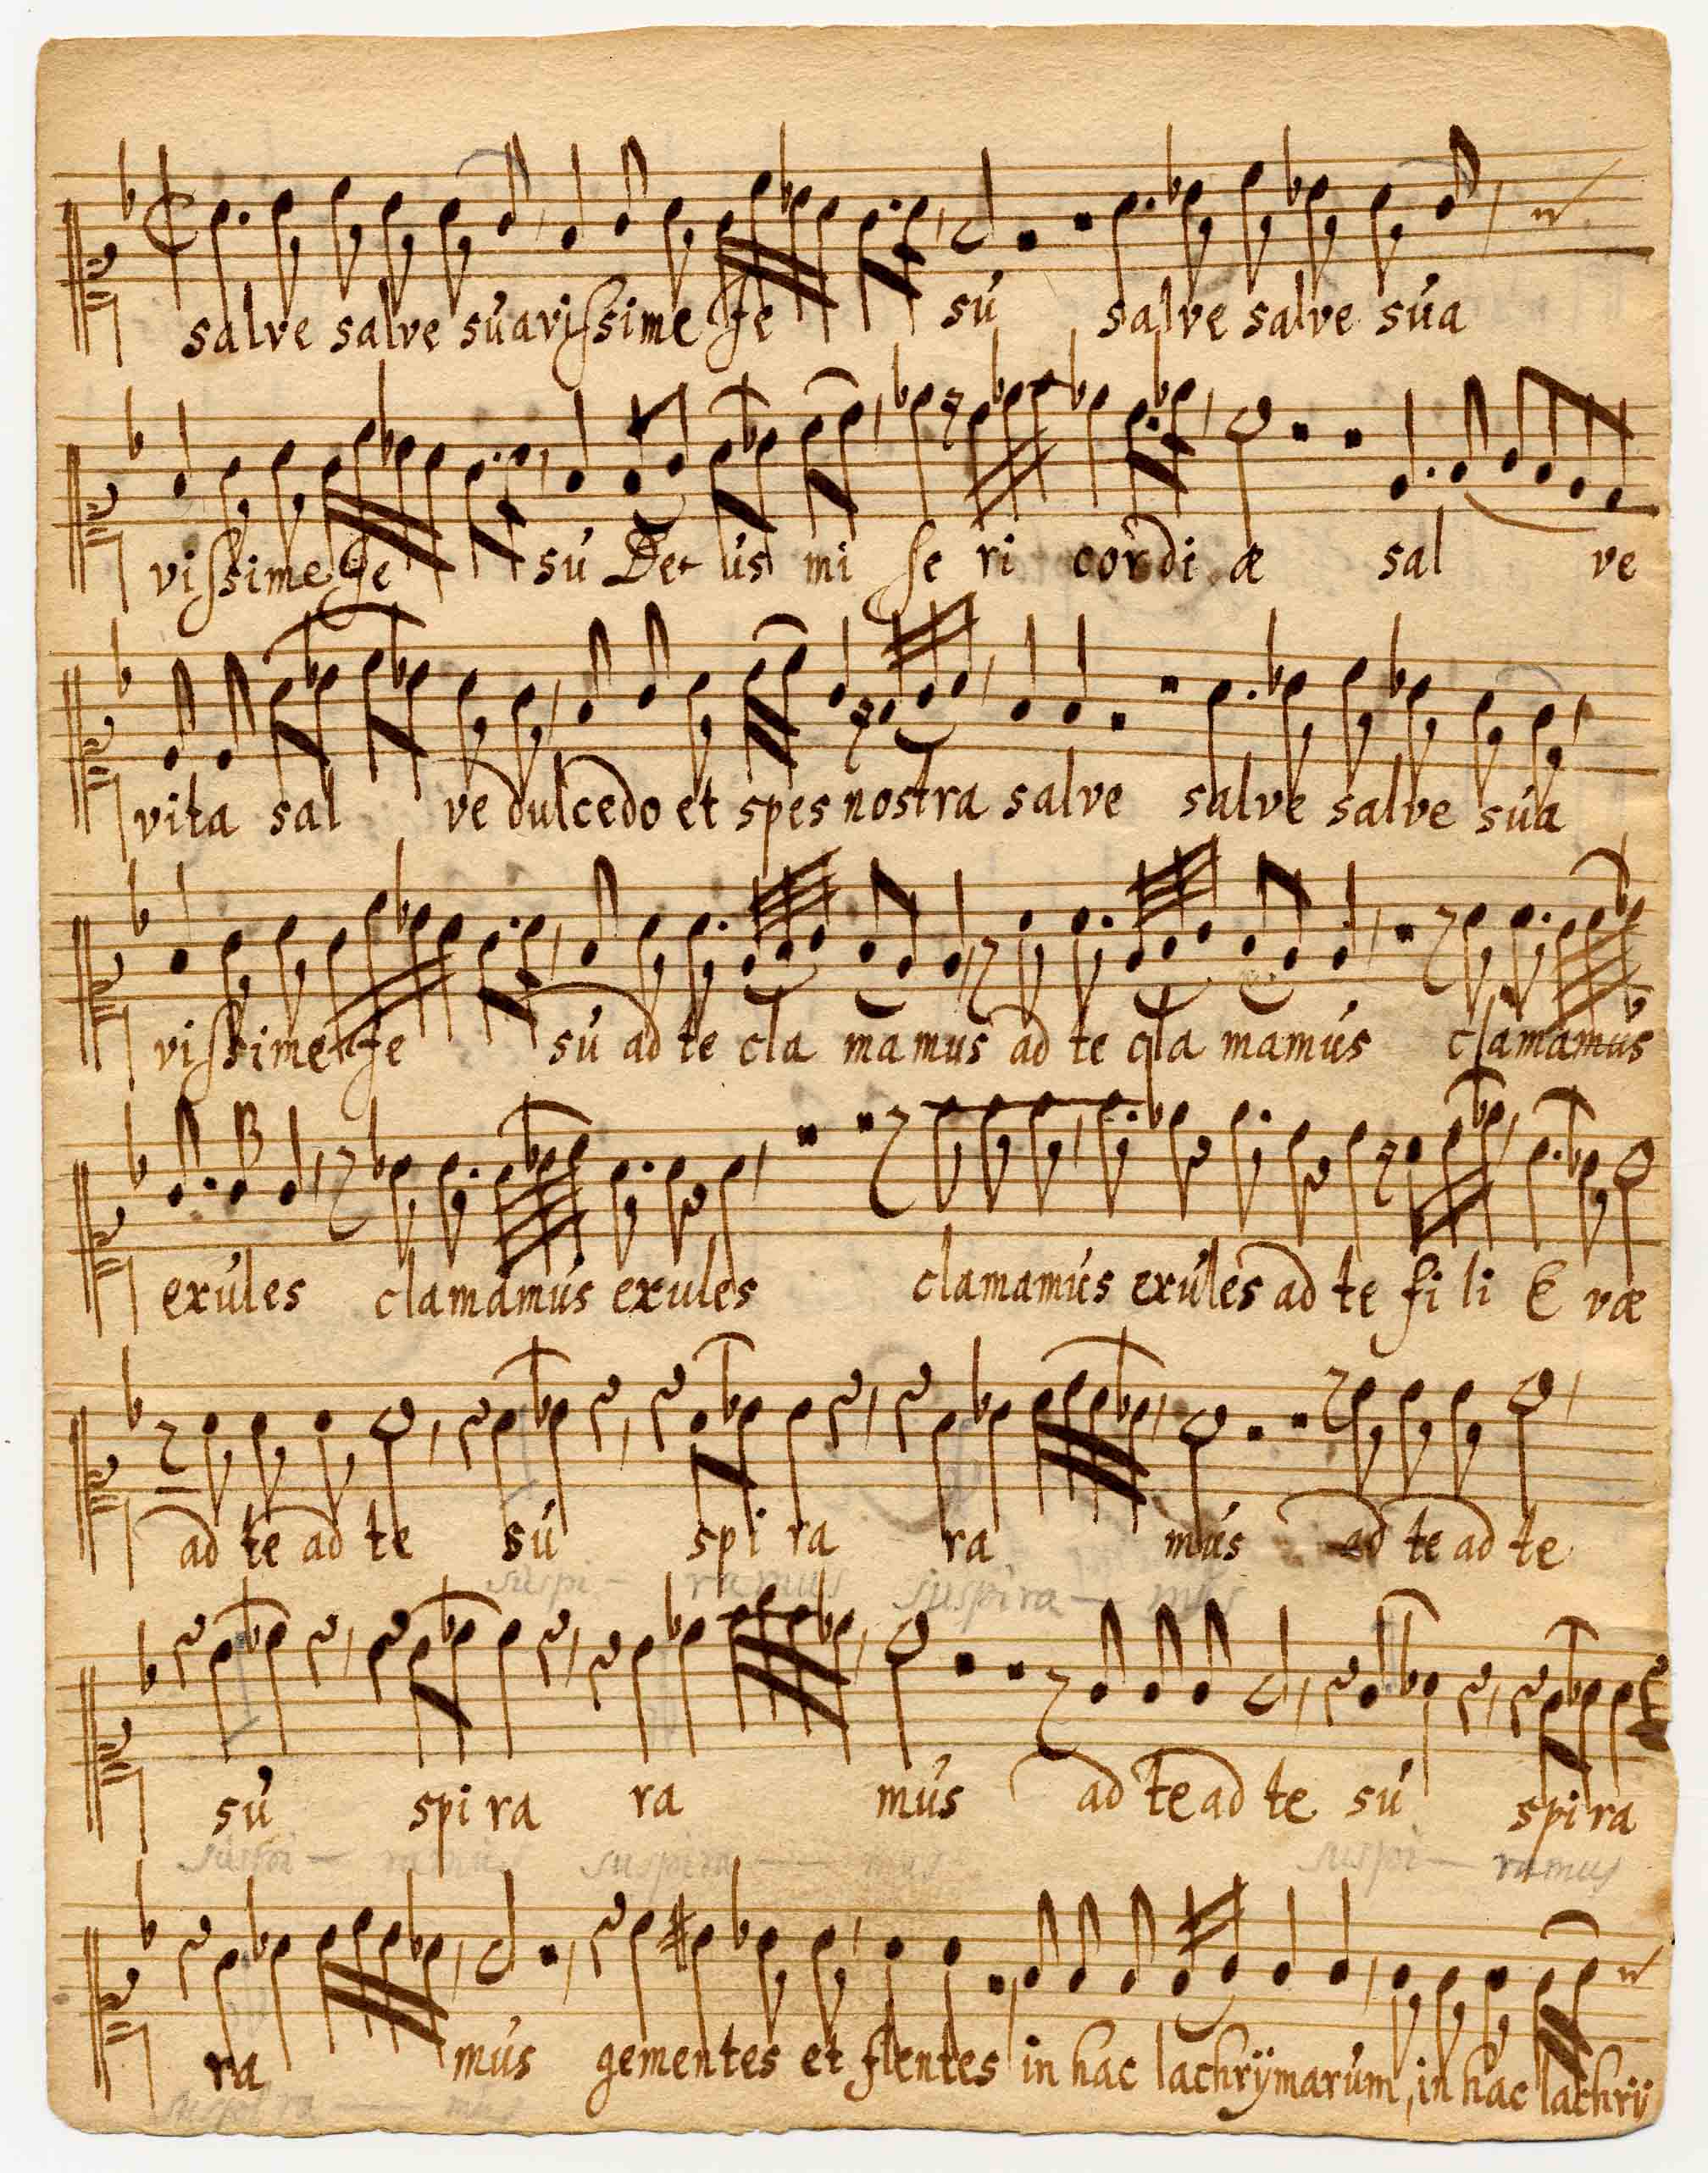 salve salve súavißsime Je sú salve salve súa
vißsime Je sú De ús mi se ri cordi æ sal ve
vita sal ve dulcedo et spes nostra salve salve salve súa
vißsime Je sú ad te cla mamus ad te cla mamús clamamús
exúles clamamús exules clamamús exúles ad te fi li E væ
ad te ad te sú spi ra ra mús ad te ad te
suspi - ramus suspira - mus
sú spi ra ra mús ad te ad te sú spi ra
suspi - ramus suspira - mus suspi - ramus
ra mús gementes et flentes in hac lachrÿmarúm, in hac lachrÿ
suspira - mus